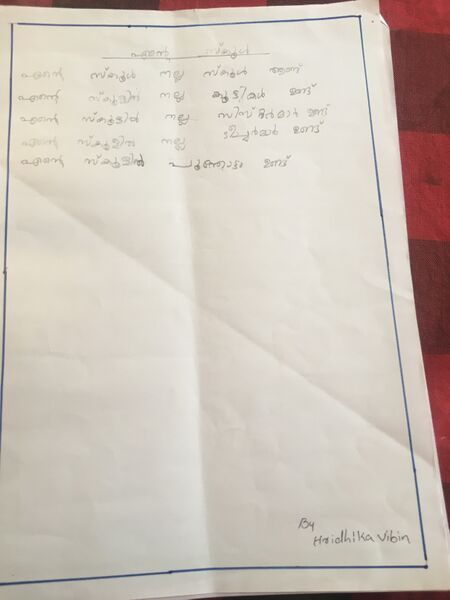 എന്റെ സ്കൂൾ
എന്റെ സ്കൂൾ നല്ല സ്കൂൾ ആണ്
എന്റെ സ്കൂളിൽ നല്ല കുട്ടികൾ ഉണ്ട്
എന്റെ സ്കൂളിൽ നല്ല സിസ്റ്റർമാർ ഉണ്ട്
എന്റെ സ്കൂളിൽ നല്ല ടീച്ചർമാർ ഉണ്ട്
എന്റെ സ്കൂളിൽ പൂന്തോട്ടം ഉണ്ട്
By
Hridhika Vibin